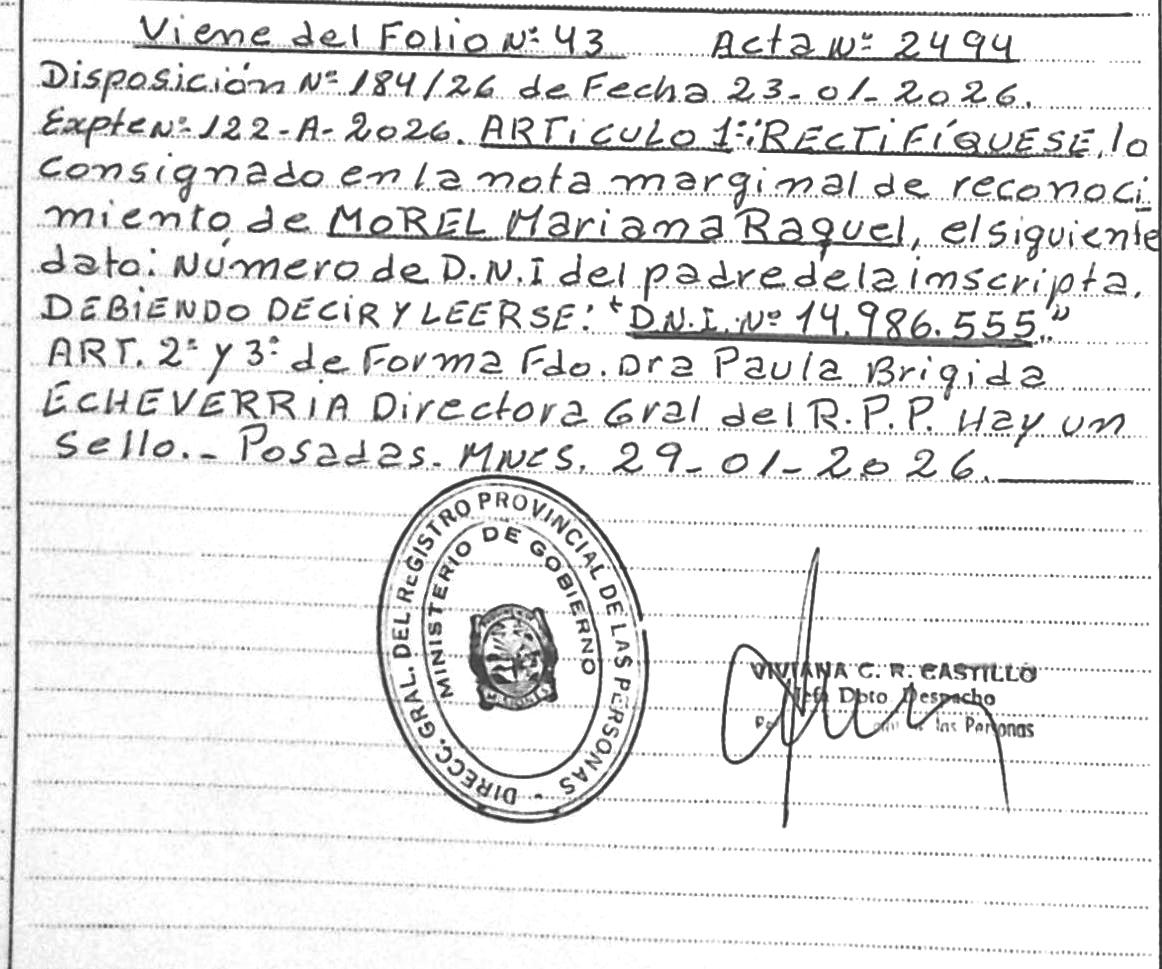 Viene del Folio Nº 43 Acta Nº 2494
Disposición Nº 184/26 de Fecha 23-01-2026.
Expte Nº 122-A-2026. ARTiCULO 1º: RECTiFíQUESE, lo
consignado en la nota marginal de reconoci
miento de MOREL Mariana Raquel, el siguiente
dato: Número de D.N.I del padre de la inscripta.
DEBiENDO DECiR Y LEERSE: "D.N.I. Nº 14.986.555."
ART. 2º y 3º de Forma Fdo. Dra Paula Brigida
ECHEVERRiA Directora Gral del R.P.P. Hay un
Sello.- Posadas. MNES. 29-01-2026.
DIRECC. GRAL. DEL REGISTRO PROVINCIAL DE LAS PERSONAS -
MINISTERIO DE GOBIERNO
MISIONES
VIVIANA C. R. CASTILLO
Jefa Dpto Despacho
de las Personas